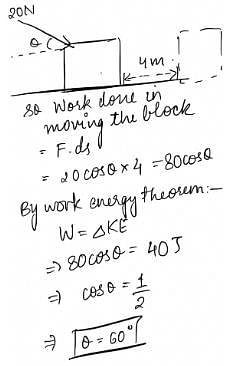 20N
θ
4m
so work done in
moving the block
= F.ds
= 20cosθ×4 = 80cosθ
By work energy theorem:-
W = ΔKE
⇒ 80cosθ = 40J
⇒ cosθ = 1/2
⇒ θ = 60°